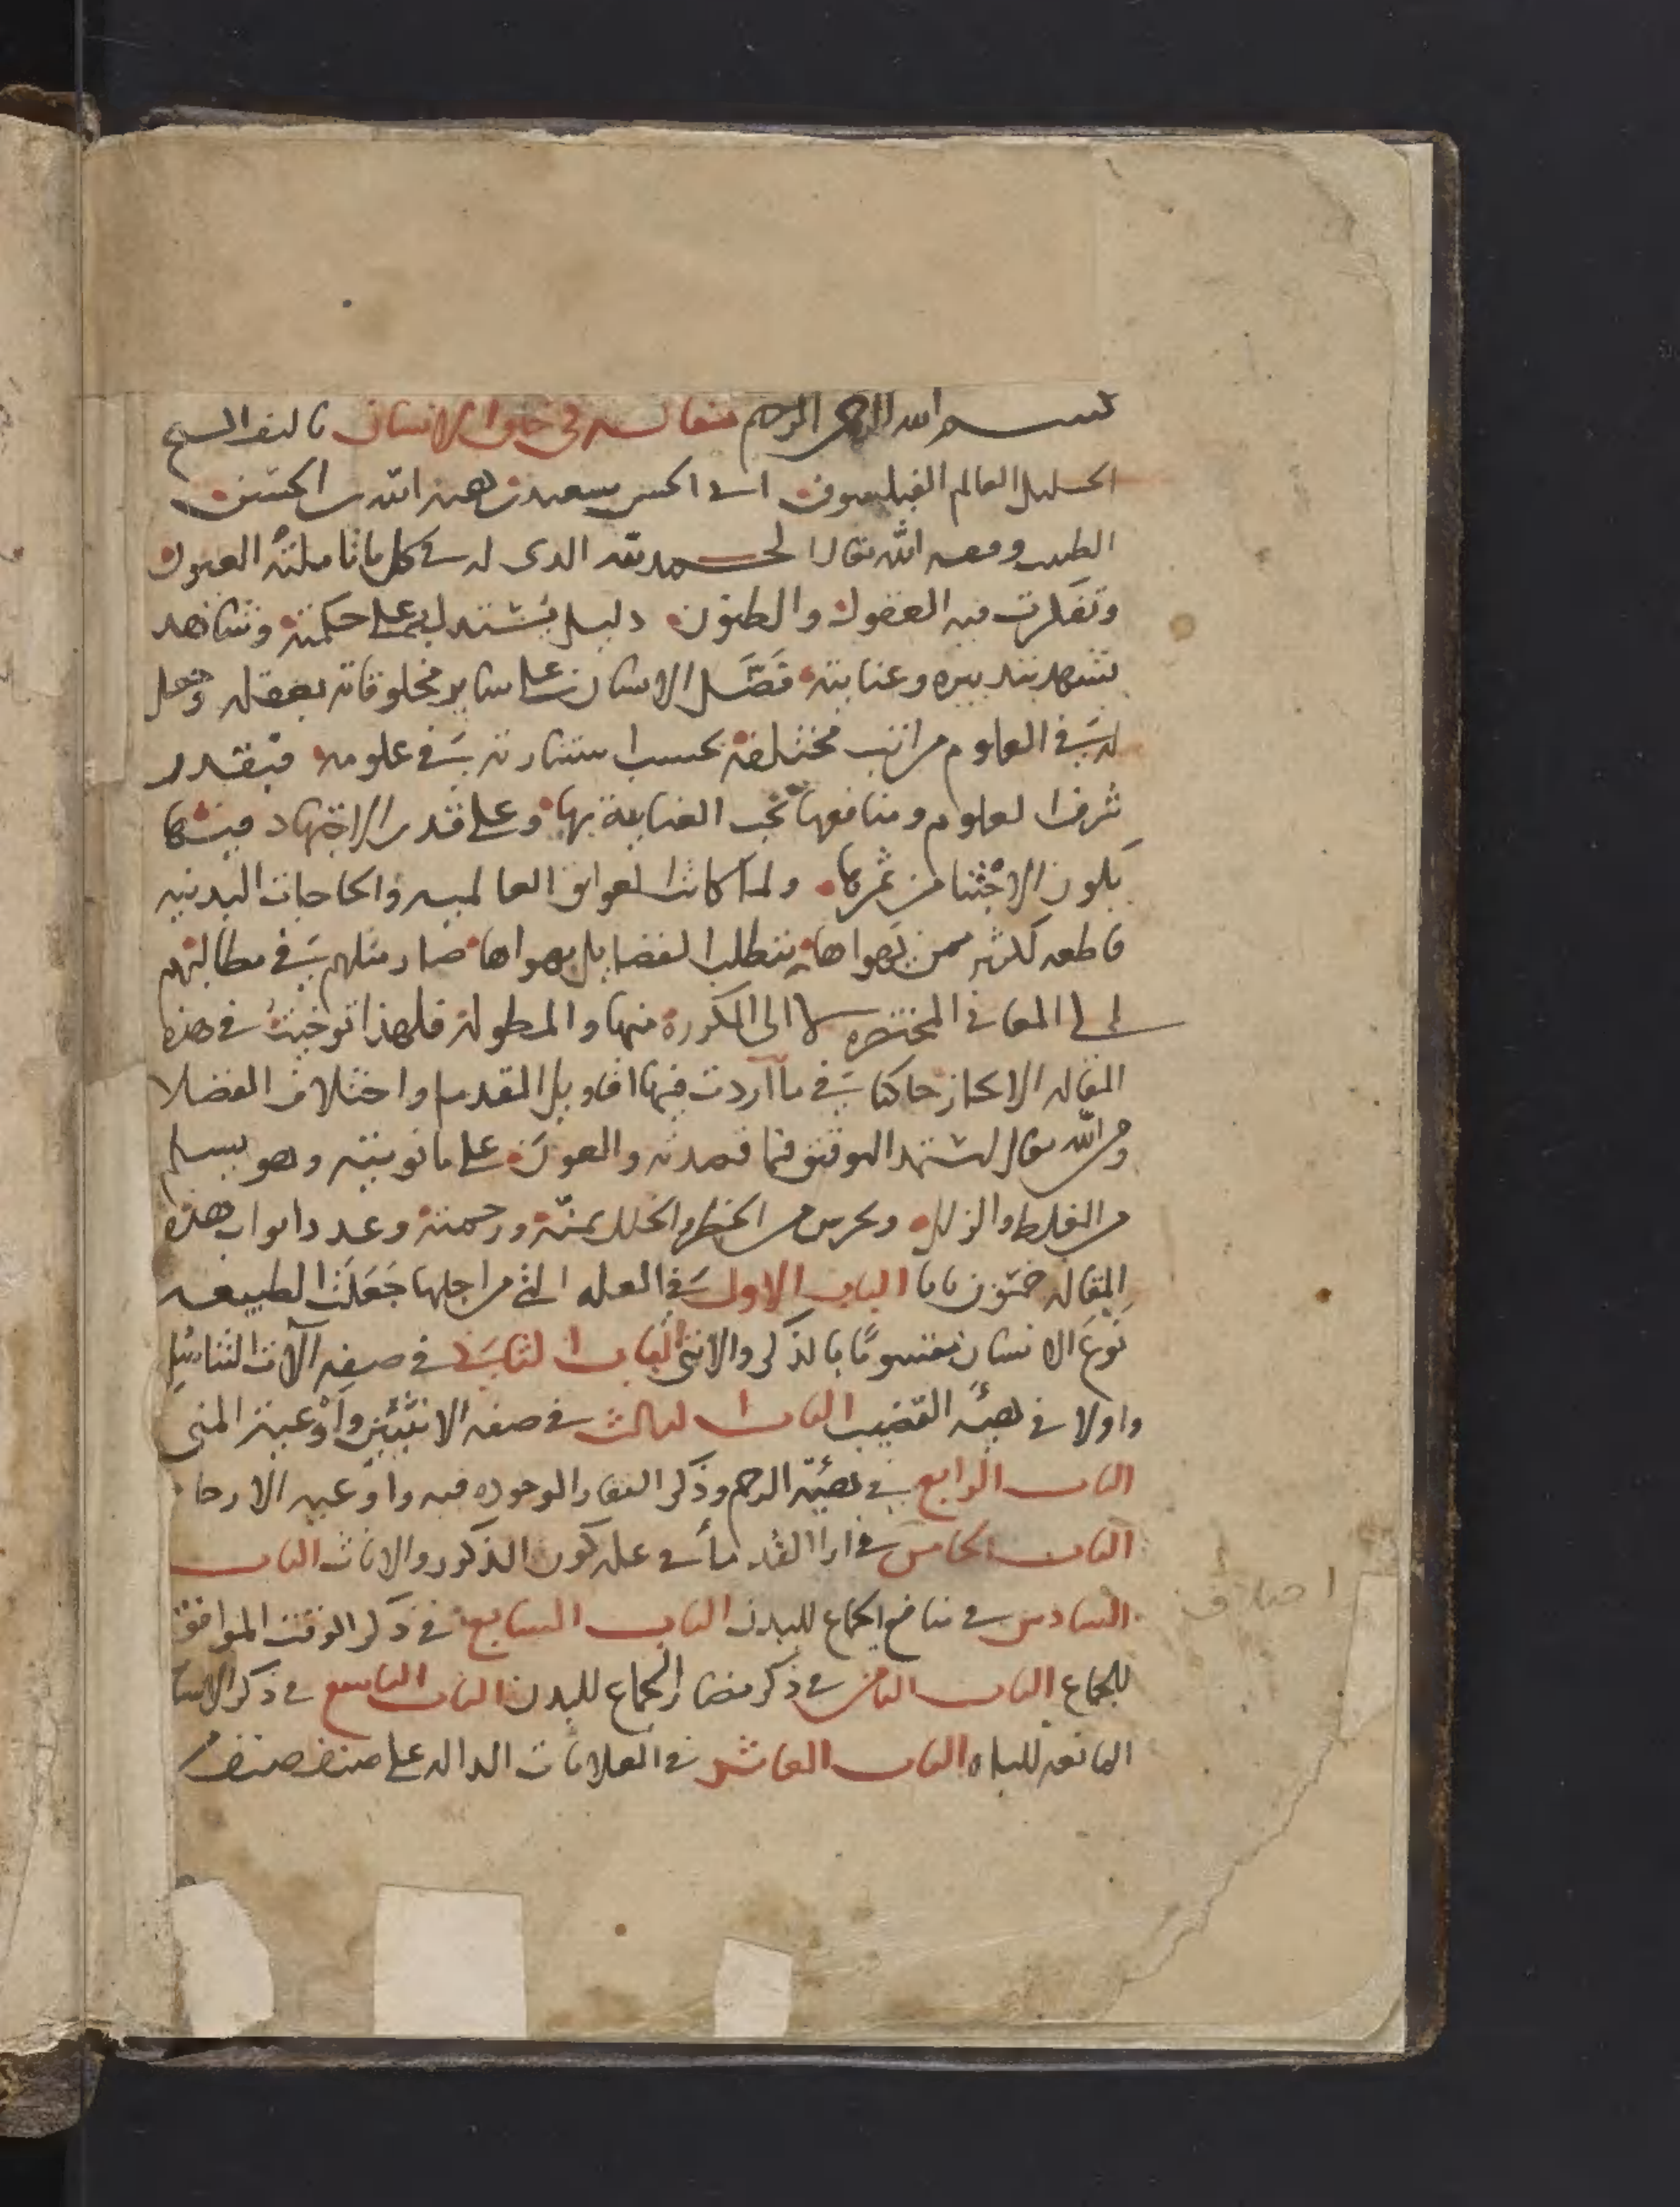 بسم الله الرحمن الرحيم مقاله فى خلق الانسان تاليف الشيخ
الجليل العالم الفيلسوف ابى الحسن سعيد بن هبة الله بن الحسين
الطبيب الله تعالى الحمد لله الذى له فى كل ما تأملته العيون
وتفكرت فيه العقول والظنون دليل يستدل به على حكمته وشاهد
يشهد بتدبيره وعنايته فضّل الانسان على ساير مخلوقاته بعقله وجعل
له فى العلوم مراتب مختلفة بحسب فى علومه فبقدر
شرف العلوم ومنافعها تجب العناية بها وعلى قدر الاجتهاد فيها
يكون الاجتنا من ثمرها ولما كانت العوايق العالميه والحاجات البدنيه
قاطعه لكثير ممن يهواها بتطلب الفضايل يهواها صار ميلهم فى مطالبهم
الى المعانى المختصره لا الى المكررة منها والمطولة فلهذا توخيت فى هذه
المقاله الايجاز حاكيا فى ما اردت فيها اقاويل القدما واختلاف الفضلا
ومن الله تعالى استمد التوفيق فيما قصدته والعون على ما نويته وهو يسلم
من الغلط والزلل ويحرس من الخطا والخلل بمنّه ورحمته وعدد ابواب هذه
المقاله خمسون بابا الباب الاول فى العله التى من اجلها جَعَلَت الطبيعه
نوع الانسان مقسومًا بالذكر والانثى الباب الثانى فى صفه آلات التناسل
واولا فى هيئه القضيب الباب الثالث فى صفه الانثيين واوعية المنى
الباب الرابع فى هيئة الرحم وذكر النقار الموجوده فيه واوعيه الارحا
الباب الخامس فى ارا القدما فى علة كون الذكور والاناث الباب
السادس فى منافع الجماع للبدن الباب السابع فى ذكر الوقت الموافق
للجماع الباب الثامن فى ذكر مضار الجماع للبدن الباب التاسع فى ذكر الاسبا
المانعه للباه الباب العاشر فى العلامات الداله على صنف صنف